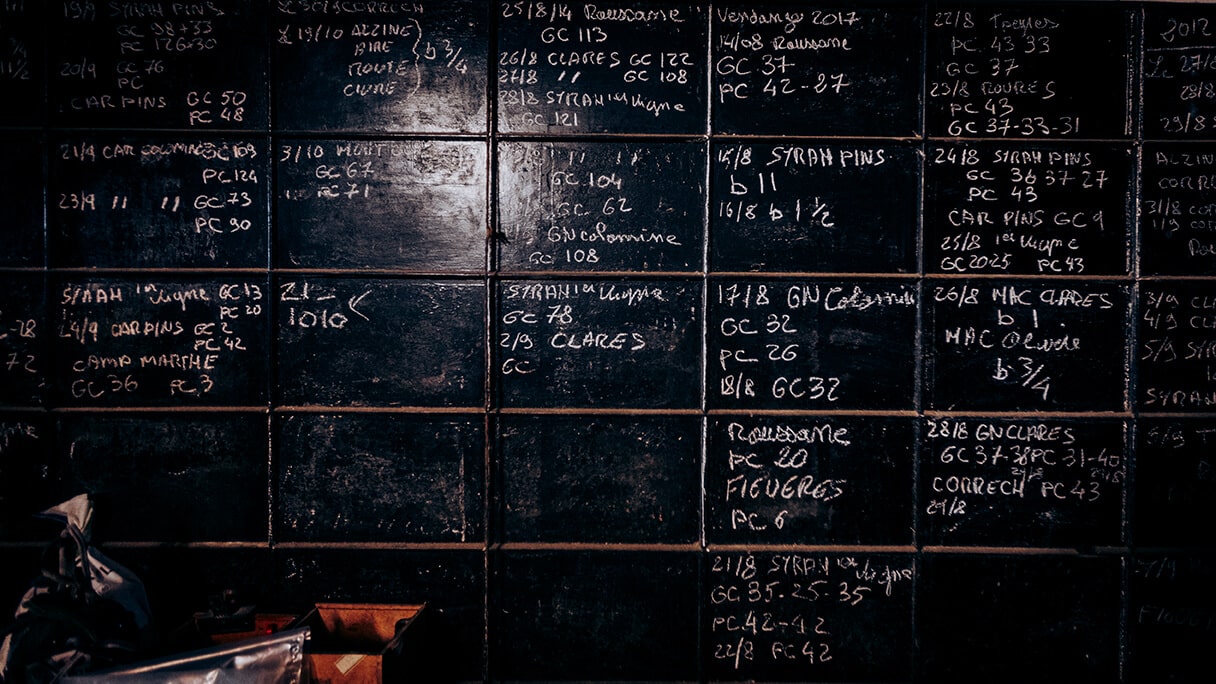 19/9 SYRAH PINS
GC 98+33
PC 126+30
20/9 GC 76
PC
CAR PINS GC 50
PC 48
21/9 CAR COLOMINE GC 109
PC 124
23/9 " " GC 73
PC 90
SYRAH 1er Vigne GC 13
PC 20
24/9 CAR PINS GC 2
PC 42
CAMP MARTHE
GC 36 PC 3
72
CORRECH
19/10 ALZINE
BIRE
ROUTE
CIURE
b 3/4
3/10
GC 67
PC 71
21-
1010
25/8/14 Roussanne
GC 113
26/8 CLARES GC 122
27/8 " GC 108
28/8 SYRAH 1er Vigne
GC 121
" "
GC 104
GC 62
GN Colomine
GC 108
SYRAH 1er Vigne
GC 78
2/9 CLARES
GC
Vendange 2017
14/08 Roussane
GC 37
PC 42-27
15/8 SYRAH PINS
b 11
16/8 b 1 1/2
17/8 GN Colomine
GC 32
PC 26
18/8 GC 32
Roussane
PC 20
FIGUERES
PC 6
21/8 SYRAH 1er Vigne
GC 35-25-35
PC 42-42
22/8 PC 42
22/8
PC 43 33
GC 37
23/8 ROURES
PC 43
GC 37-33-31
24/8 SYRAH PINS
GC 36 37-27
PC 43
CAR PINS GC 9
25/8 1er Vigne
GC 20-25 PC 43
26/8 MAC CLARES
b 1
MAC
b 3/4
28/8 GN CLARES
GC 37-38 PC 31-40
CORRECH PC 43
29/8
2012
Le 27/8
28/8
29/8
ALZINE
31/8
1/9
3/9
4/9
5/9
SYRAH